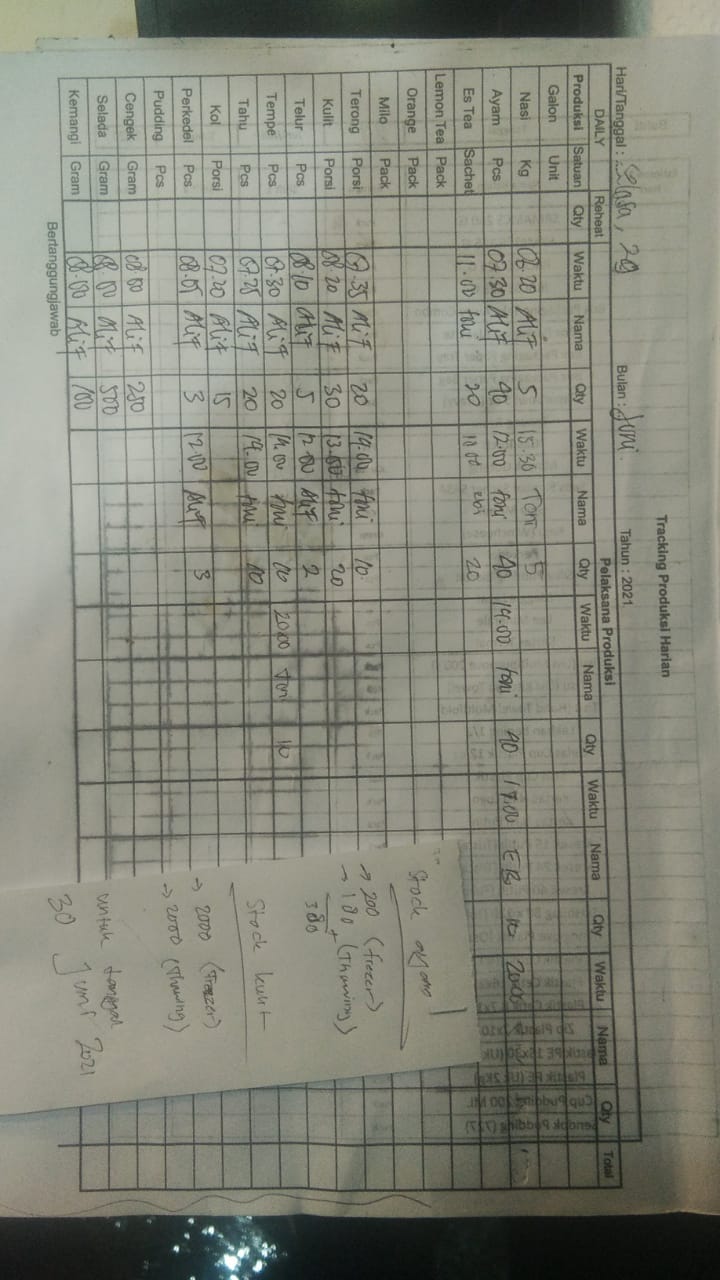 Tracking Produksi Harian
Hari/Tanggal : Selasa, 29 Bulan : Juni Tahun : 2021
DAILY Reheat Pelaksana Produksi
Produksi Satuan Qty Waktu Nama Qty Waktu Nama Qty Waktu Nama Qty Waktu Nama Qty Waktu Nama Qty Total
Galon Unit
Nasi Kg 06.20 Alif 5 15.30 Toni 5
Ayam Pcs 07.30 Alif 40 12.00 toni 40 14.00 toni 40 17.00 10 20.00
Es Tea Sachet 11.00 toni 20 20
Lemon Tea Pack
Orange Pack
Milo Pack
Terong Porsi 07.35 Alif 20 14.00 toni 10
Kulit Porsi 08.20 Alif 30 13.00 toni 20
Telur Pcs 08.10 Alif 5 12.00 Alif 2
Tempe Pcs 07.30 Alif 20 14.00 toni 10 20.00 Toni 10
Tahu Pcs 07.25 Alif 20 14.00 toni 10
Kol Porsi 07.20 Alif 15
Perkedel Pcs 08.05 Alif 3 12.00 Alif 3
Pudding Pcs
Cengek Gram 08.00 Alif 250
Selada Gram 08.00 Alif 500
Kemangi Gram 08.00 Alif 100
Bertanggungjawab
Stock ayam
→ 200 (frezer)
→ 180 (Thawing) +
380
Stock kulit
→ 2000 (Frezer)
→ 2000 (Thawing)
untuk tanggal
30 Juni 2021